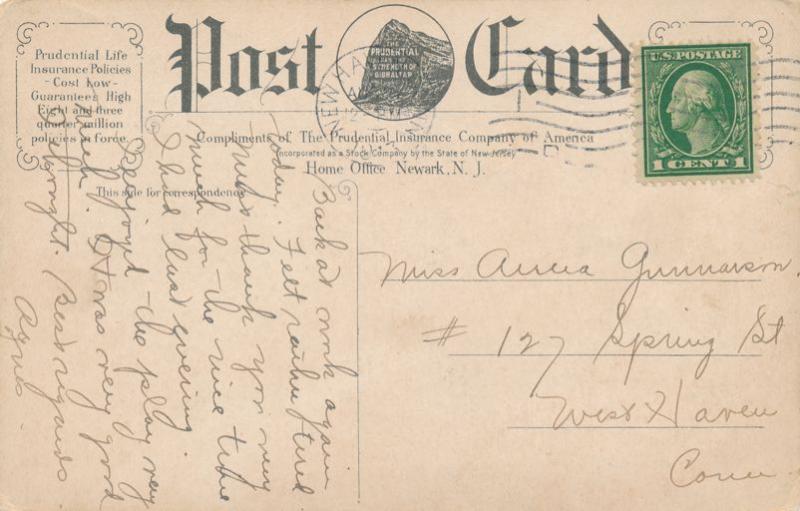 Prudential Life
Insurance Policies
- Cost Low -
Guarantees High
Eight and three
quarter million
policies in force.
Post Card
THE
PRUDENTIAL
HAS THE
STRENGTH OF
GIBRALTAR
U.S. POSTAGE
1 CENT 1
NEW HAVEN
Compliments of The Prudential Insurance Company of America
Incorporated as a Stock Company by the State of New Jersey
Home Office Newark, N. J.
This side for correspondence
Back at work again
today. Felt rather tired
Miss thank you very
much for the nice time
I had last evening.
Enjoyed the play very
much. It was very good
Best regards
Agnes.
Miss Gunnarson
# 127 Spring St
West Haven
Conn